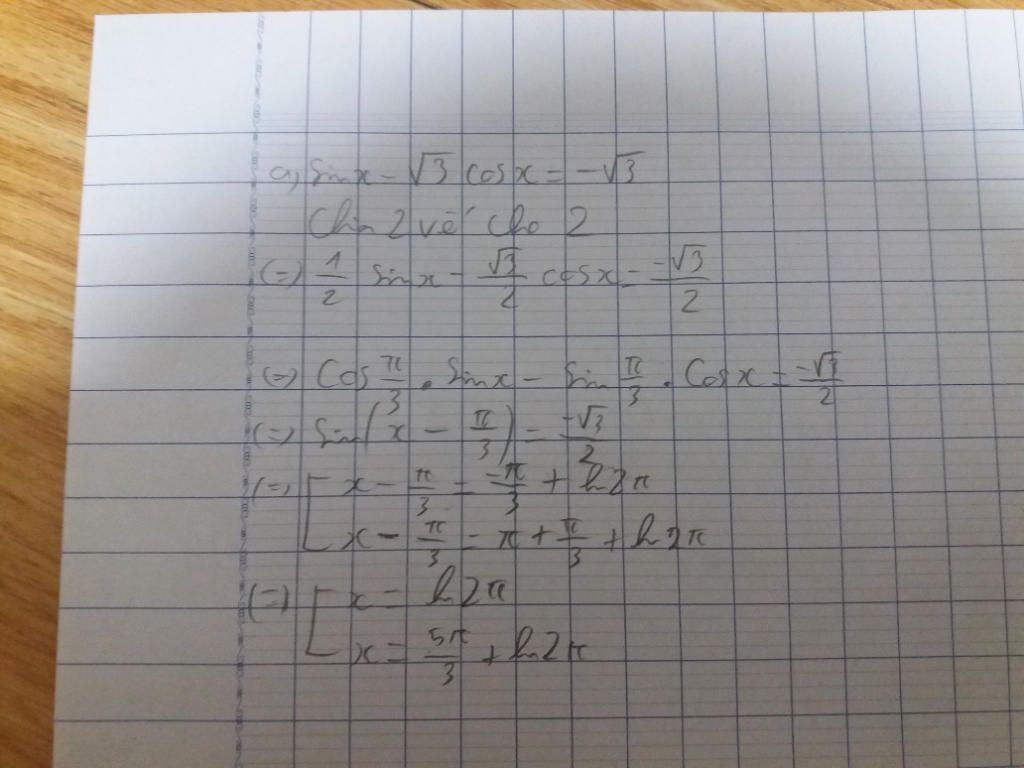 a, Sinx - √3 cosx = -√3
Chia 2 vế cho 2
(=) 1/2 Sinx - √3/2 cosx = -√3/2
(=) Cos π/3 . Sinx - Sin π/3 . Cosx = -√3/2
(=) Sin(x - π/3) = -√3/2
(=) [ x - π/3 = -π/3 + k2π
x - π/3 = π + π/3 + k2π
(=) [ x = k2π
x = 5π/3 + k2π